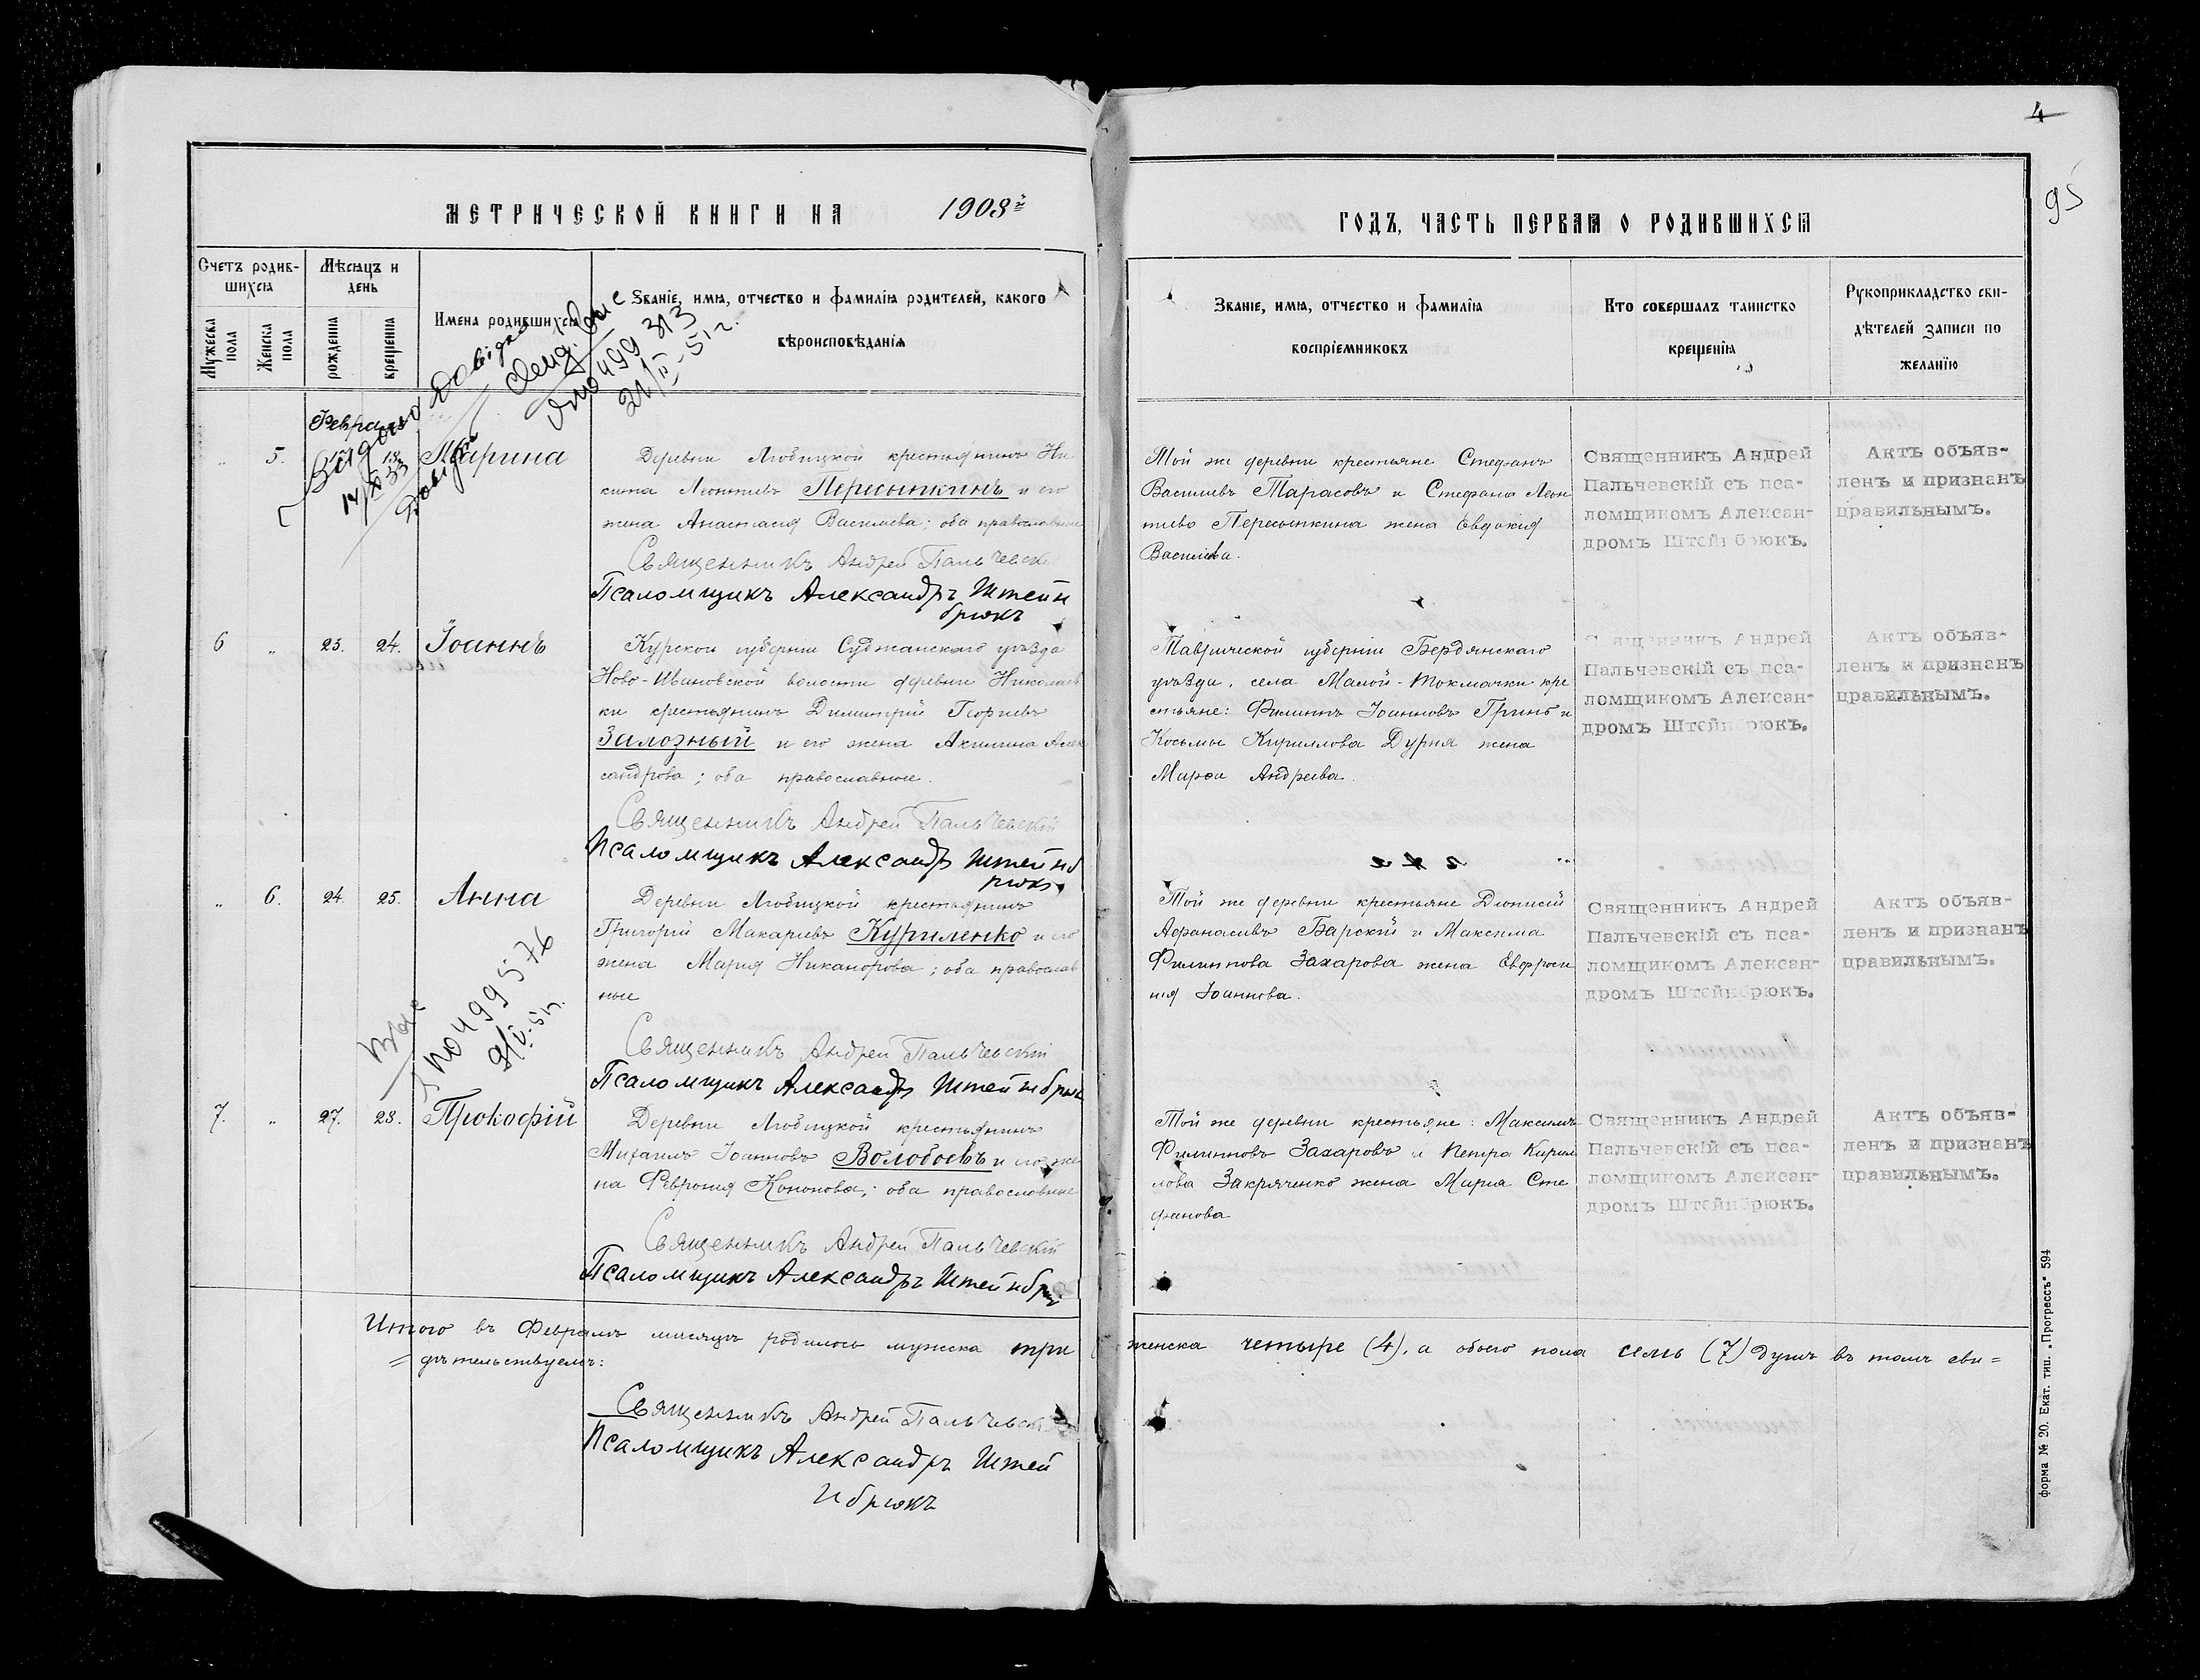 МЕТРИЧЕСКОЙ КНИГИ НА 1908й
ГОДЪ, ЧАСТЬ ПЕРВАЯ О РОДИВШИХСЯ
4
95
Счетъ родив-
шихся
Мужеска
пола
Женска
пола
Мѣсяцъ и
день
рожденія
крещенія
Имена родившихся
Званіе, имя, отчество и фамилія родителей, какого
вѣроисповѣданія
Званіе, имя, отчество и фамилія
воспріемниковъ
Кто совершалъ таинство
крещенія
Рукоприкладство сви-
дѣтелей записи по
желанію
499 313
Февраль
„ 5. 18. Марина
Деревни Любицкой крестьянинъ Ни
кита Леонтіевъ Пересыпкинъ и его
жена Анастасія Васильева; оба православные
Священникъ Андрей Пальчевскі
Псаломщикъ Александръ Штейн
брюкъ
Той же деревни крестьяне Стефанъ
Васильевъ Тарасовъ и Стефана Леон
тіева Пересыпкина жена Евдокія
Васильева.
Священникъ Андрей
Пальчевскій съ пса-
ломщикомъ Алексан-
дромъ Штейнбрюкъ.
Актъ объяв-
ленъ и признанъ
правильнымъ.
6 „ 23. 24. Іоаннъ
Курской губерніи Суджанскаго уѣзда
Ново-Ивановской волости деревни Николаев
ки крестьянинъ Димитрій Георгіевъ
Залозный и его жена Акилина Алек
сандрова; оба православные.
Священникъ Андрей Пальчевскій
Псаломщикъ Александръ Штейнб
рюкъ
Таврической губерніи Бердянскаго
уѣзда, села Малой-Токмачки кре
стьяне: Филиппъ Іоанновъ Гринь и
Косьмы Кириллова Дурня жена
Марѳа Андреева.
Священникъ Андрей
Пальчевскій съ пса-
ломщикомъ Алексан-
дромъ Штейнбрюкъ.
Актъ объяв-
ленъ и признанъ
правильнымъ.
„ 6. 24. 25. Анна
Деревни Любицкой крестьянинъ
Григорій Макаріевъ Куриленко и его
жена Марія Никанорова; оба православ
ные
Священникъ Андрей Пальчевскій
Псаломщикъ Александръ Штейнбрюк
Той же деревни крестьяне Діонисій
Аѳанасіевъ Барскій и Максима
Филиппова Захарова жена Евфроси
нія Іоаннова.
Священникъ Андрей
Пальчевскій съ пса-
ломщикомъ Алексан-
дромъ Штейнбрюкъ.
Актъ объяв-
ленъ и признанъ
правильнымъ.
499576
7. „ 27. 28. Прокофій
Деревни Любицкой крестьянинъ
Михаилъ Іоанновъ Волобоевъ и его же
на Февронія Кононова; оба православные
Священникъ Андрей Пальчевскій
Псаломщикъ Александръ Штейнбрю
Той же деревни крестьяне: Максимъ
Филипповъ Захаровъ и Петра Кирил
лова Закряченко жена Марія Сте
фанова
Священникъ Андрей
Пальчевскій съ пса-
ломщикомъ Алексан-
дромъ Штейнбрюкъ.
Актъ объяв-
ленъ и признанъ
правильнымъ.
Итого въ Февралѣ мѣсяцѣ родилось мужска три женска четыре (4), а обоего пола семь (7) душъ въ томъ сви=
=дѣтельствуемъ:
Священникъ Андрей Пальчевскі
Псаломщикъ Александръ Штей
нбрюкъ
форма № 20. Екат. тип. „Прогрессъ" 594